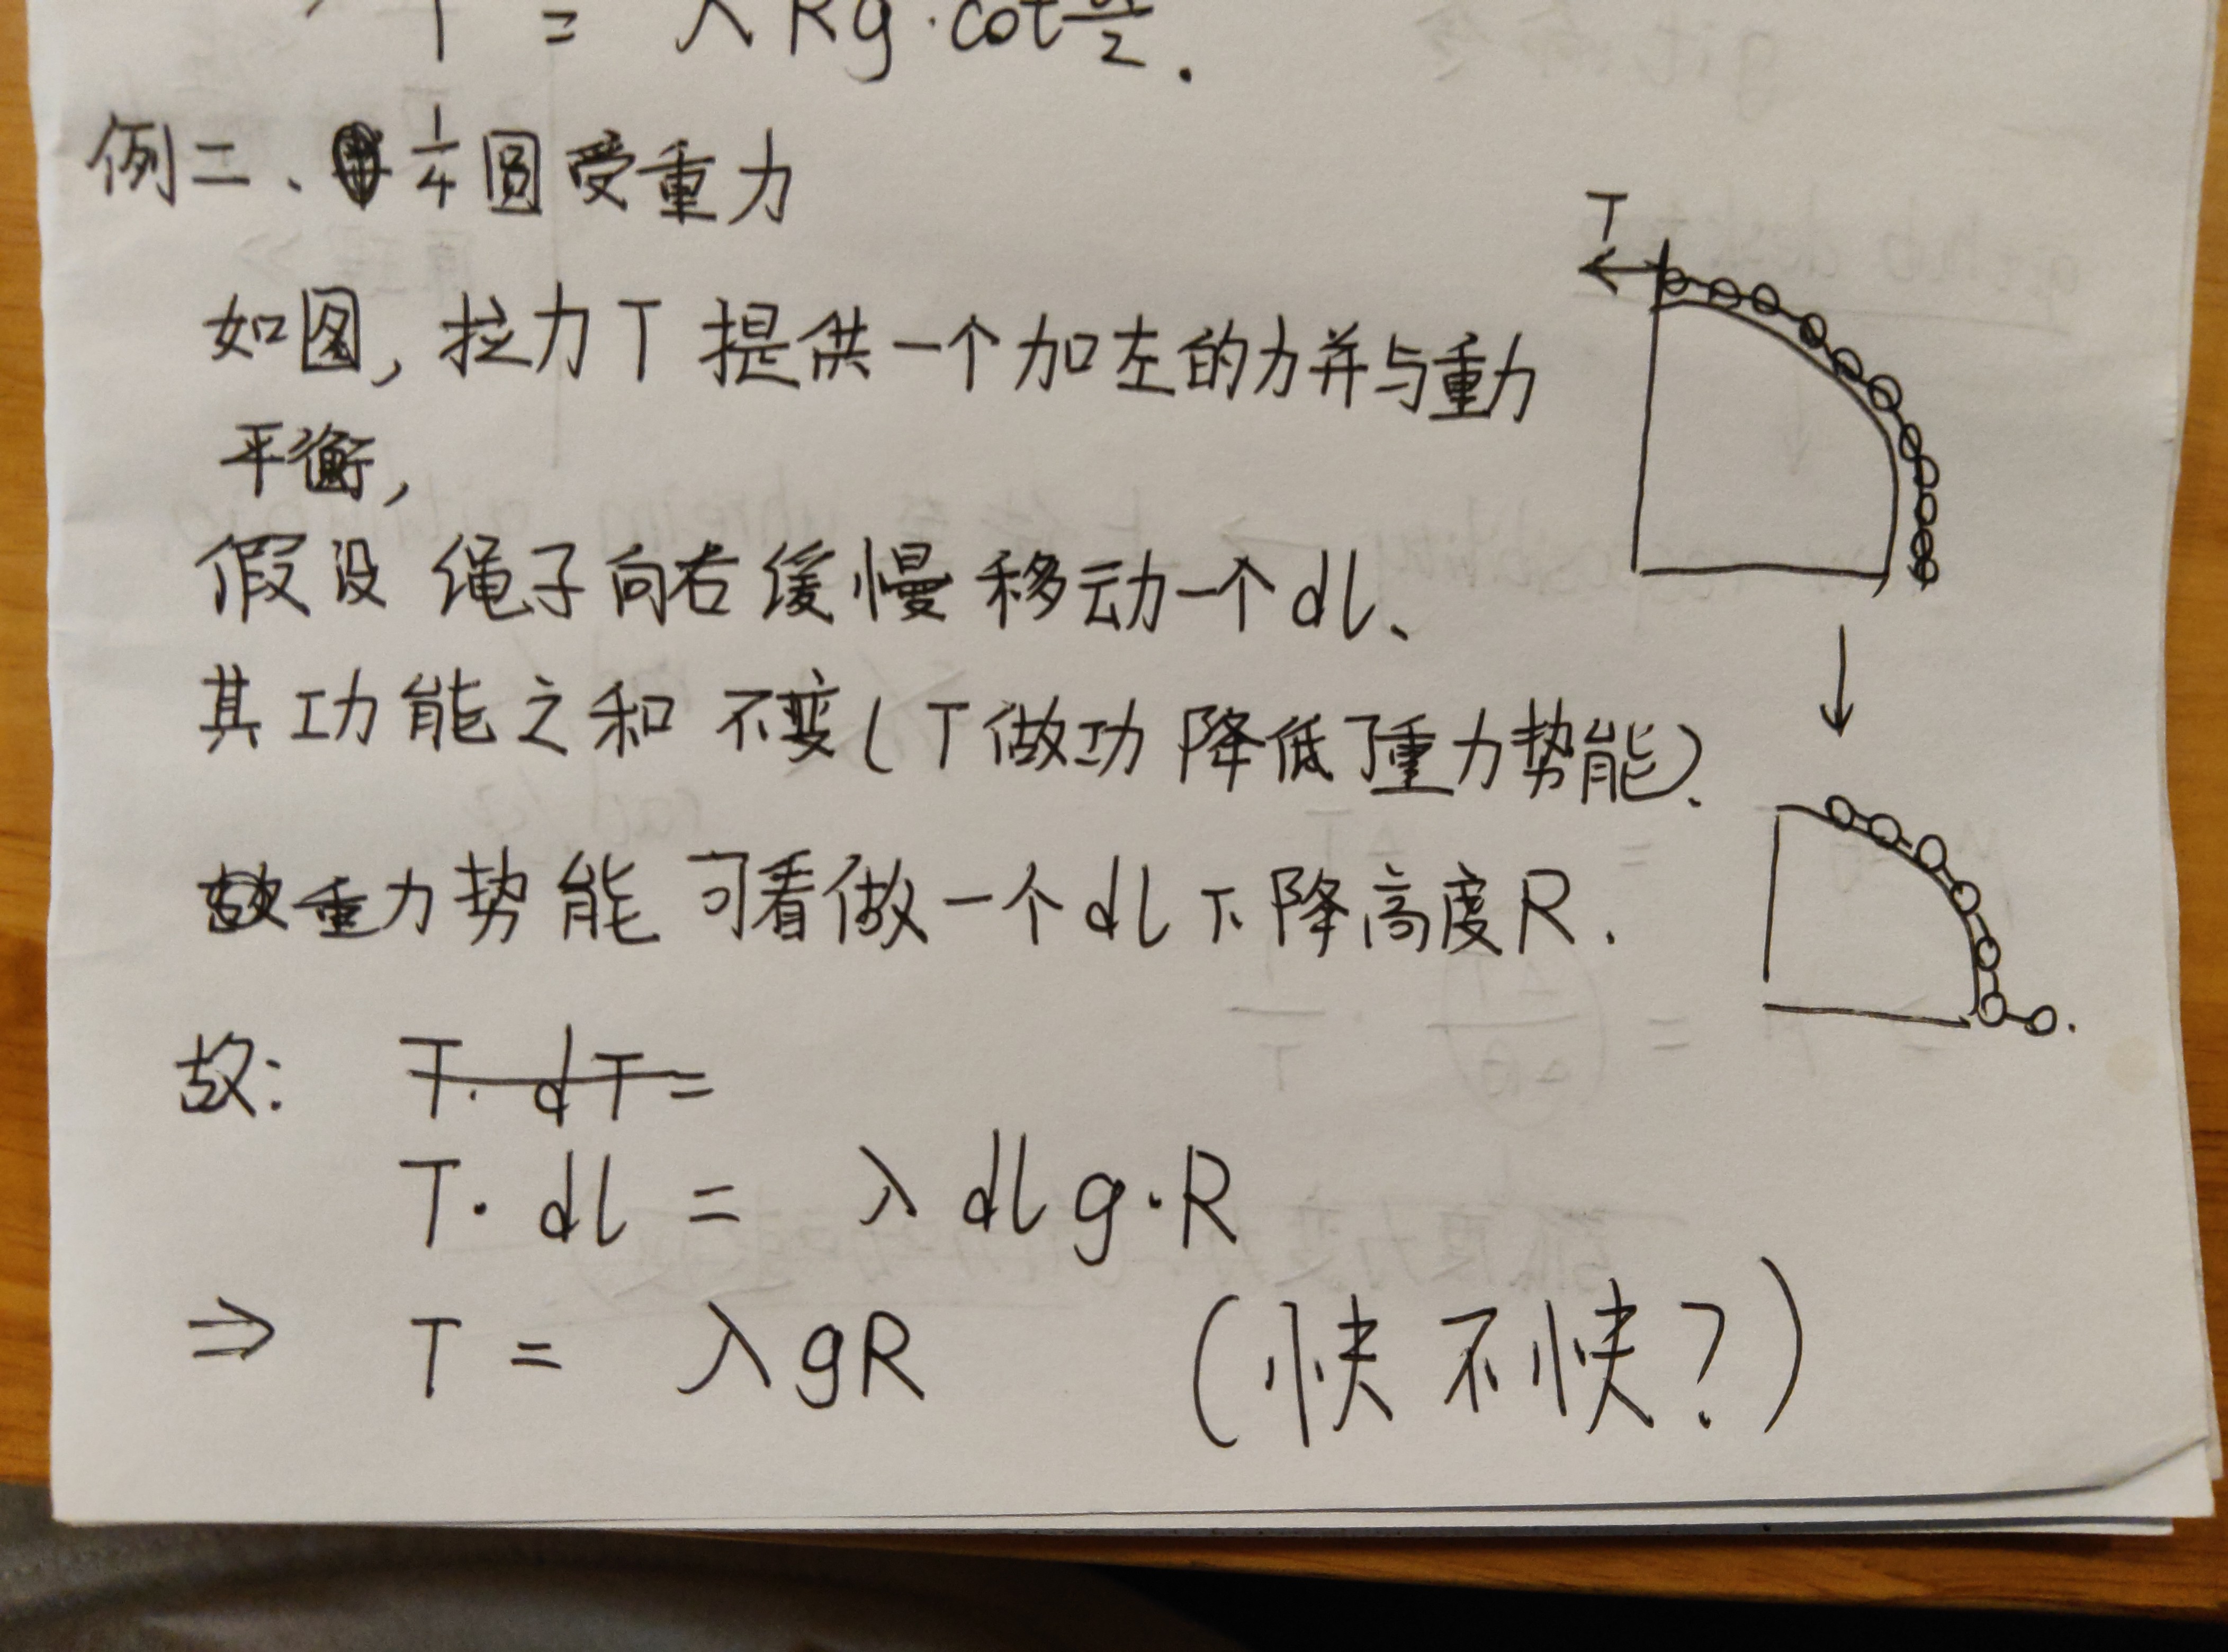 T = λRg·cot 2.
例二、1/4圆受重力
T
如图,拉力T提供一个加左的力并与重力
平衡,
假设绳子向右缓慢移动一个dl、
其功能之和不变(T做功降低了重力势能).
故重力势能可看做一个dl下降高度R.
故: T·dT=
T·dl = λdlg·R
⇒ T = λgR (快不快?)